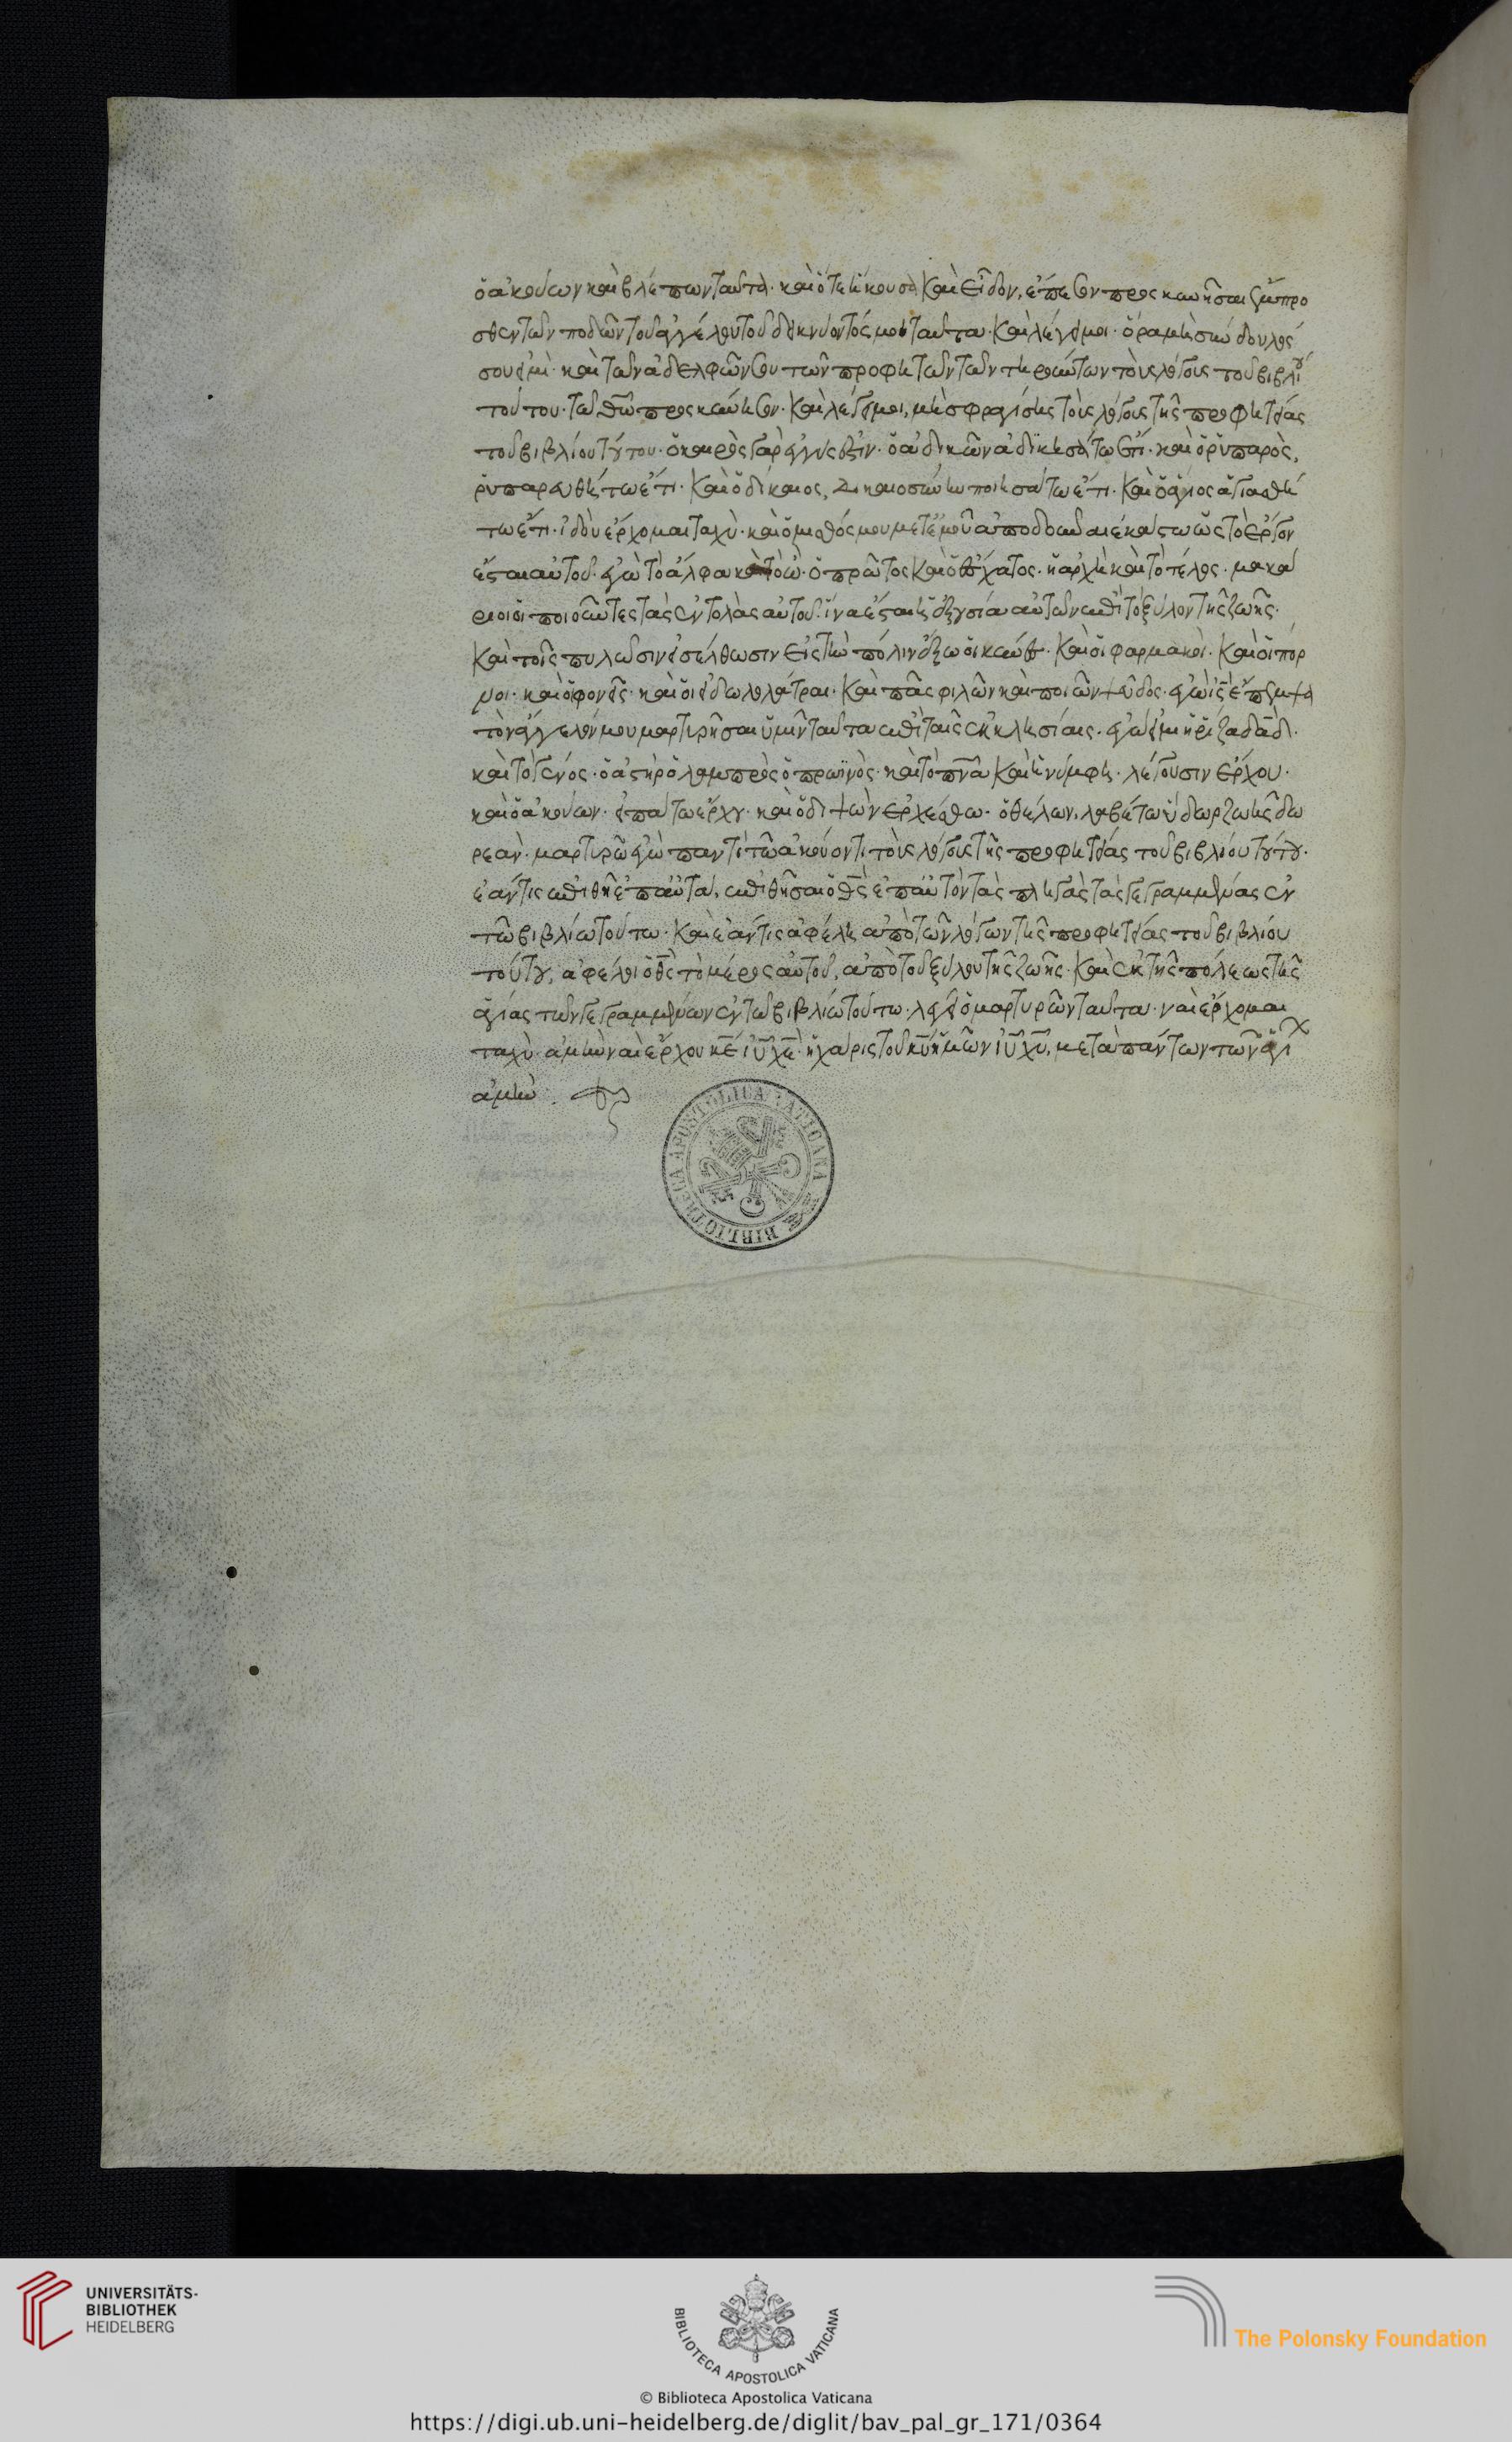 ὁ ἀκούων καὶ βλέπων ταῦτα· καὶ ὅτε ἤκουσα καὶ εἶδον, ἔπεσον προσκυνῆσαι ἔμπρο
σθεν τῶν ποδῶν τοῦ ἀγγέλου τοῦ δεικνύοντός μοι ταῦτα· καὶ λέγει μοι· ὅρα μὴ σύνδουλός
σου εἰμὶ· καὶ τῶν ἀδελφῶν σου τῶν προφητῶν τῶν τηρούντων τοὺς λόγους τοῦ βιβλίου
τούτου· τῶ θῶ προσκύνησον· καὶ λέγει μοι, μὴ σφραγίσης τοὺς λόγους τῆς προφητείας
τοῦ βιβλίου τούτου· ὁ καιρὸς γὰρ ἐγγύς ἐστιν· ὁ ἀδικῶν ἀδικησάτω ἔτι· καὶ ὁ ῥυπαρὸς,
ῥυπαρευθήτω ἔτι· καὶ ὁ δίκαιος, δικαιοσύνην ποιησάτω ἔτι· καὶ ὁ ἅγιος ἁγιασθή
τω ἔτι· ἰδοὺ ἔρχομαι ταχὺ· καὶ ὁ μισθός μου μετ' ἐμοῦ ἀποδοῦναι ἑκάστω ὡς τὸ ἔργον
ἔσται αὐτοῦ· ἐγὼ τὸ ἄλφα καὶ τὸ ὦ· ὁ πρῶτος καὶ ὁ ἔσχατος· ἡ ἀρχὴ καὶ τὸ τέλος· μακά
ριοι οἱ ποιοῦντες τὰς ἐντολὰς αὐτοῦ· ἵνα ἔσται ἡ ἐξουσία αὐτῶν ἐπὶ τὸ ξύλον τῆς ζωῆς·
καὶ τοῖς πυλῶσιν εἰσέλθωσιν εἰς τὴν πόλιν ἔξω οἱ κύνες· καὶ οἱ φαρμακοὶ· καὶ οἱ πόρ
νοι· καὶ οἱ φονεῖς· καὶ οἱ εἰδωλολάτραι· καὶ πᾶς φιλῶν καὶ ποιῶν ψεῦδος· ἐγὼ ις ἔπεμψα
τὸν ἄγγελόν μου μαρτυρῆσαι ὑμῖν ταῦτα ἐπὶ ταῖς ἐκκλησίαις· ἐγώ εἰμι ἡ ῥίζα δαδ·
καὶ τὸ γένος· ὁ ἀστὴρ ὁ λαμπρὸς ὁ πρωϊνὸς· καὶ τὸ πνα καὶ ἡ νύμφη· λέγουσιν ἔρχου·
καὶ ὁ ἀκούων· εἰπάτω ἔρχου· καὶ ὁ διψῶν ἐρχέσθω· ὁ θέλων, λαβέτω ὕδωρ ζωῆς δω
ρεὰν· μαρτυρῶ ἐγὼ παντὶ τῶ ἀκούοντι τοὺς λόγους τῆς προφητείας τοῦ βιβλίου τούτου·
ἐάν τις ἐπιθῆ ἐπ' αὐτά, ἐπιθήσαι ὁ θς ἐπ' αὐτὸν τὰς πληγὰς τὰς γεγραμμένας ἐν
τῶ βιβλίω τούτω· καὶ ἐάν τις ἀφέλη ἀπὸ τῶν λόγων τῆς προφητείας τοῦ βιβλίου
τούτου, ἀφέλοι ὁ θς τὸ μέρος αὐτοῦ, ἀπὸ τοῦ ξύλου τῆς ζωῆς· καὶ ἐκ τῆς πόλεως τῆς
ἁγίας τῶν γεγραμμένων ἐν τῶ βιβλίω τούτω· λέγει ὁ μαρτυρῶν ταῦτα· ναὶ ἔρχομαι
ταχὺ· ἀμὴν ναὶ ἔρχου κε ιυ χε· ἡ χάρις τοῦ κυ ἡμῶν ιυ χυ, μετὰ πάντων τῶν ἁγί
ἀμήν
BIBLIOTHECA APOSTOLICA VATICANA
UNIVERSITÄTS-
BIBLIOTHEK
HEIDELBERG
BIBLIOTECA APOSTOLICA VATICANA
The Polonsky Foundation
© Biblioteca Apostolica Vaticana
https://digi.ub.uni-heidelberg.de/diglit/bav_pal_gr_171/0364